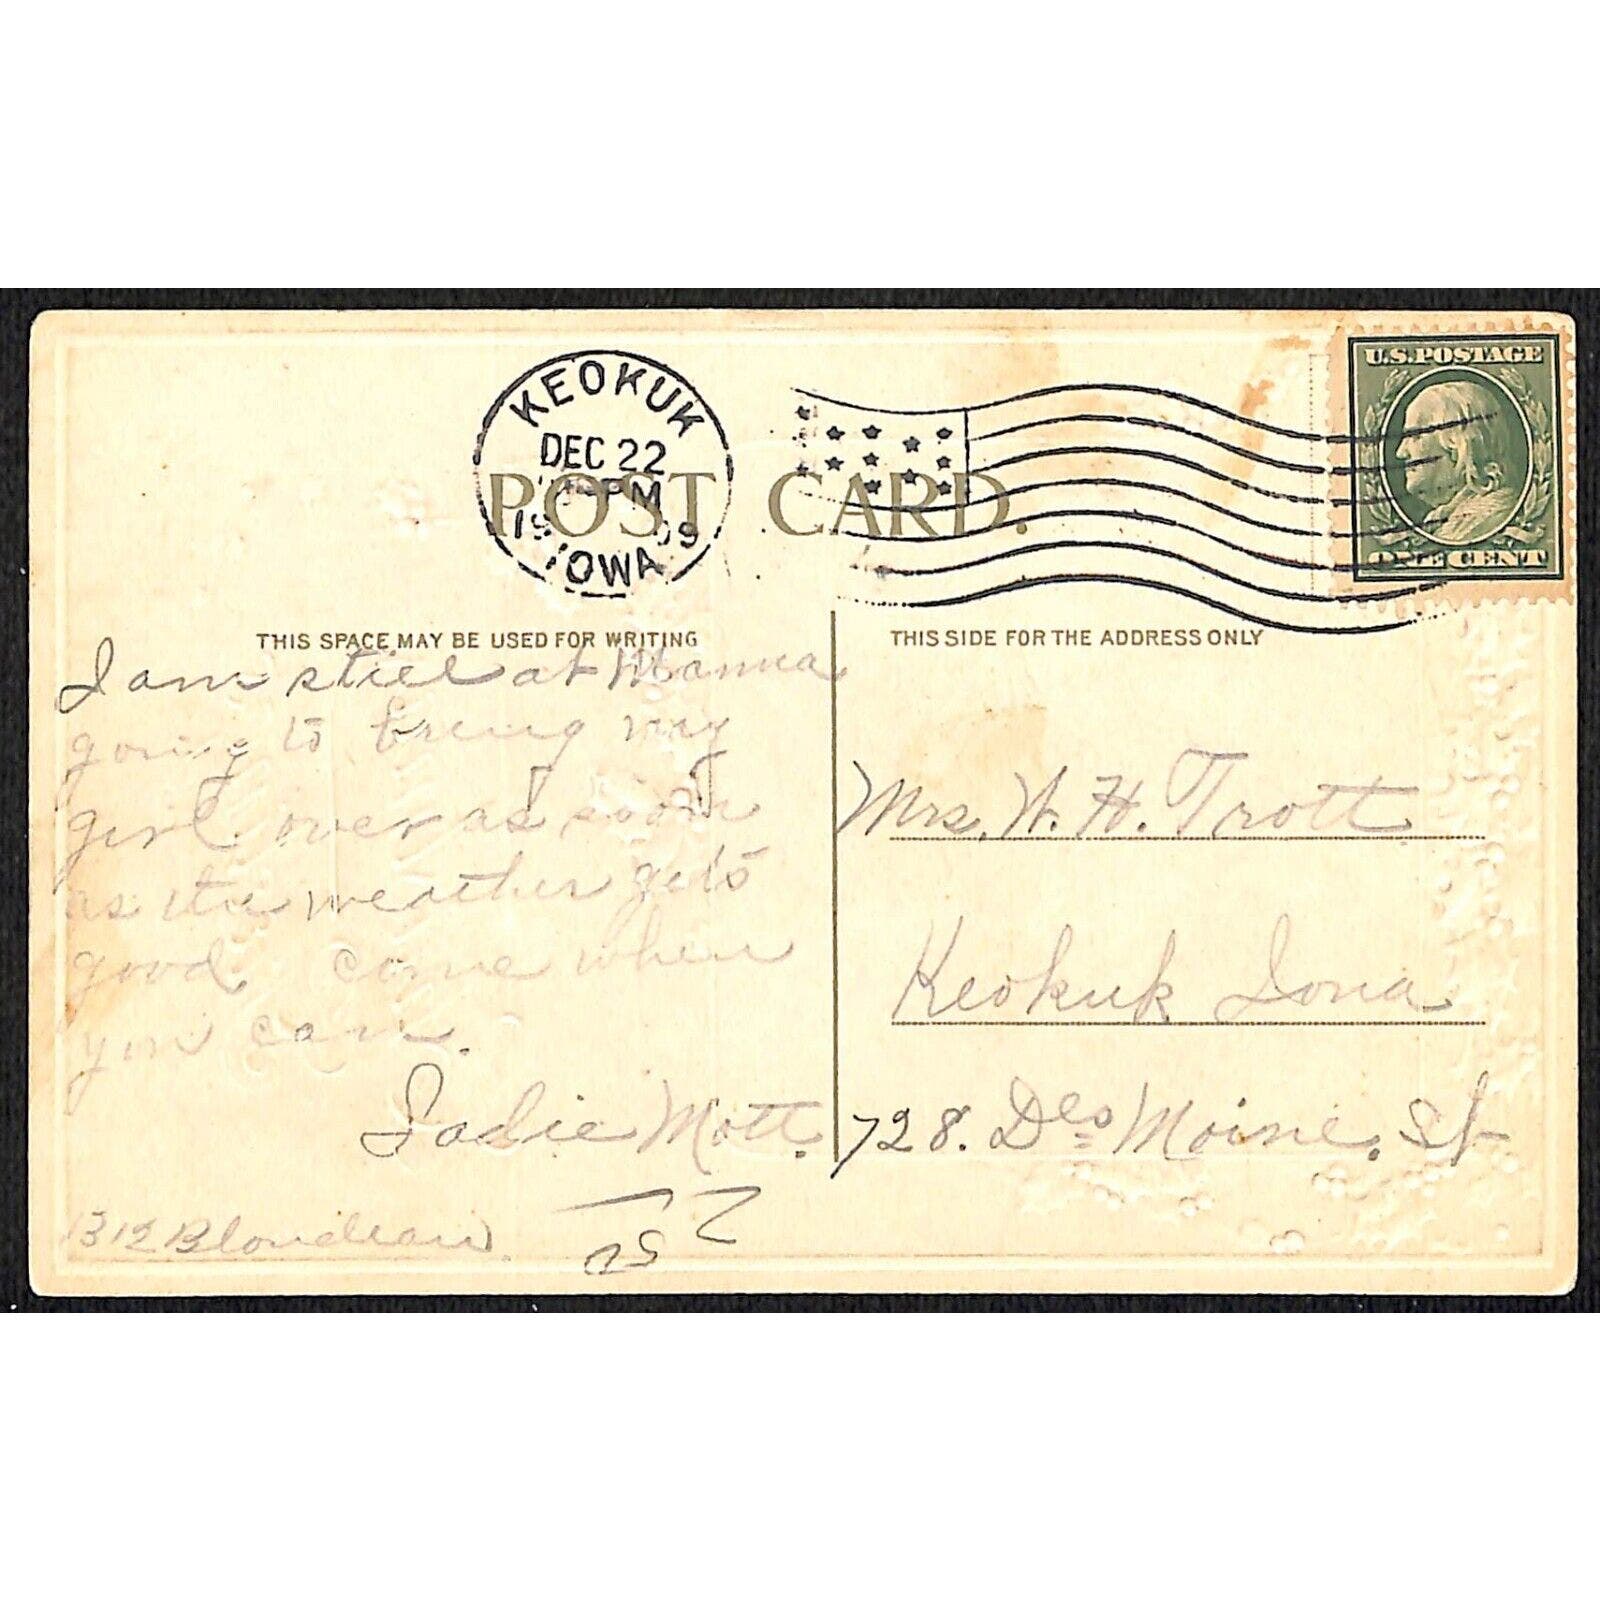 KEOKUK
DEC 22
PM
1909
IOWA
U.S. POSTAGE
ONE CENT
POST CARD.
THIS SPACE MAY BE USED FOR WRITING
I am still at Mamma
going to bring my
girl over as soon
as the weather gets
good. come when
you can.
Sadie Mott.
1312 Blondeau
THIS SIDE FOR THE ADDRESS ONLY
Mrs. W. H. Trott
Keokuk Iowa
728. Des Moine. St